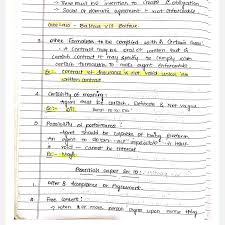 → There must be intention to create obligation
→ Social or domestic agreement is not enforceable.
Balfour v/s Balfour
3. Other Formalities to be complied with in certain cases:
A contract may be oral or written but a
certain contract it may specify to comply even
certain formalities to make agent enforceable
Ex:- Contract of insurance is not valid unless its
written contract.
4. Certainity of meaning:
Agent must be certain, definite & not vague.
Ex:- Oil.
5. Possibility of performance:
Agent should be capable of being perform
An agent to do
is void - Cannot be enforced.
Ex:- Magic.
Essentials as per Sec 10:
1. Offer & Acceptance or Agreement.
2. Free consent:
→ When 2 or more person agree upon same thing